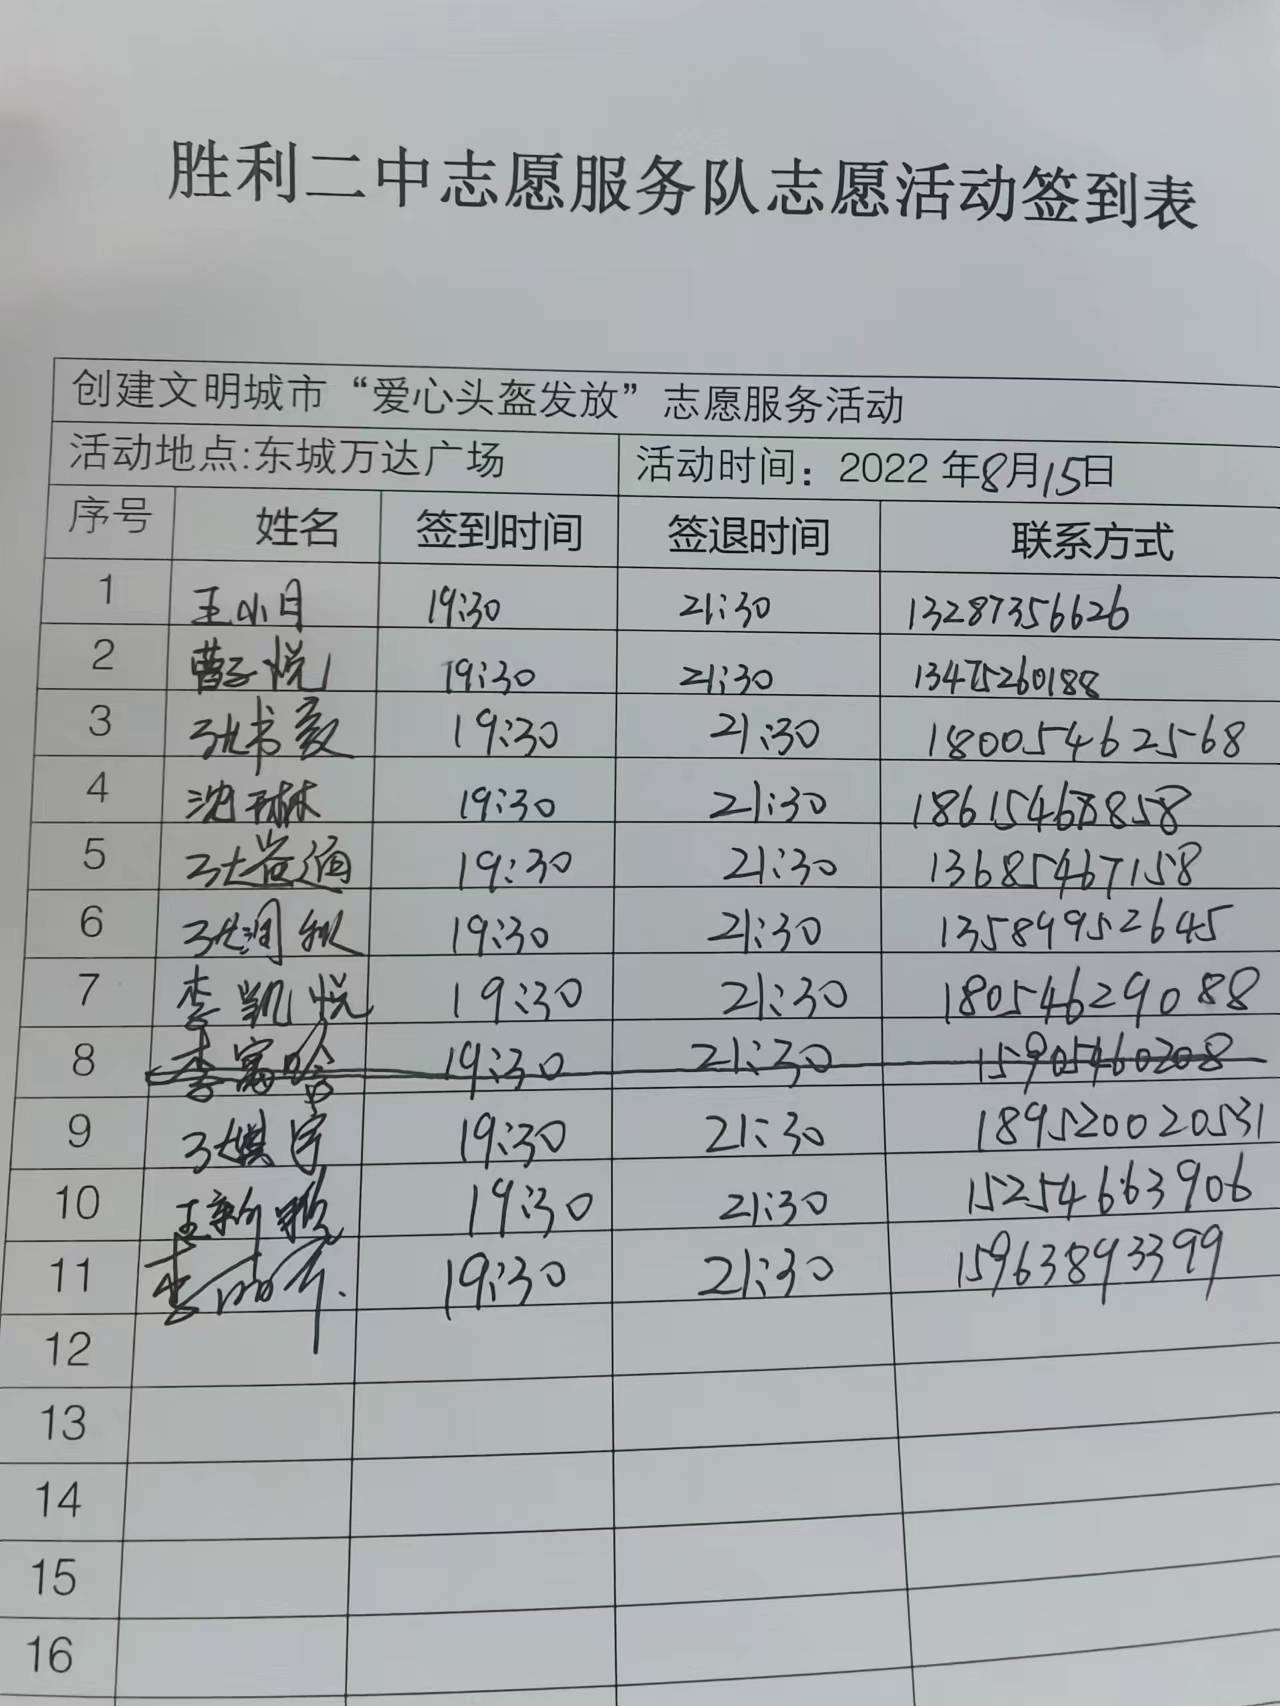 胜利二中志愿服务队志愿活动签到表
创建文明城市“爱心头盔发放”志愿服务活动
活动地点:东城万达广场 活动时间：2022 年8月15日
序号 姓名 签到时间 签退时间 联系方式
1 王小月 19:30 21:30 13287356626
2 曹子悦 19:30 21:30 13475260188
3 张书毅 19:30 21:30 18005462568
4 沈琳 19:30 21:30 18615468858
5 张益通 19:30 21:30 13685467158
6 张润 19:30 21:30 13589952645
7 李凯悦 19:30 21:30 18054629088
8 李富哈 19:30 21:30 15905460208
9 张棋宇 19:30 21:30 189520020531
10 王新 19:30 21:30 15254663906
11 李 19:30 21:30 15963893399
12
13
14
15
16